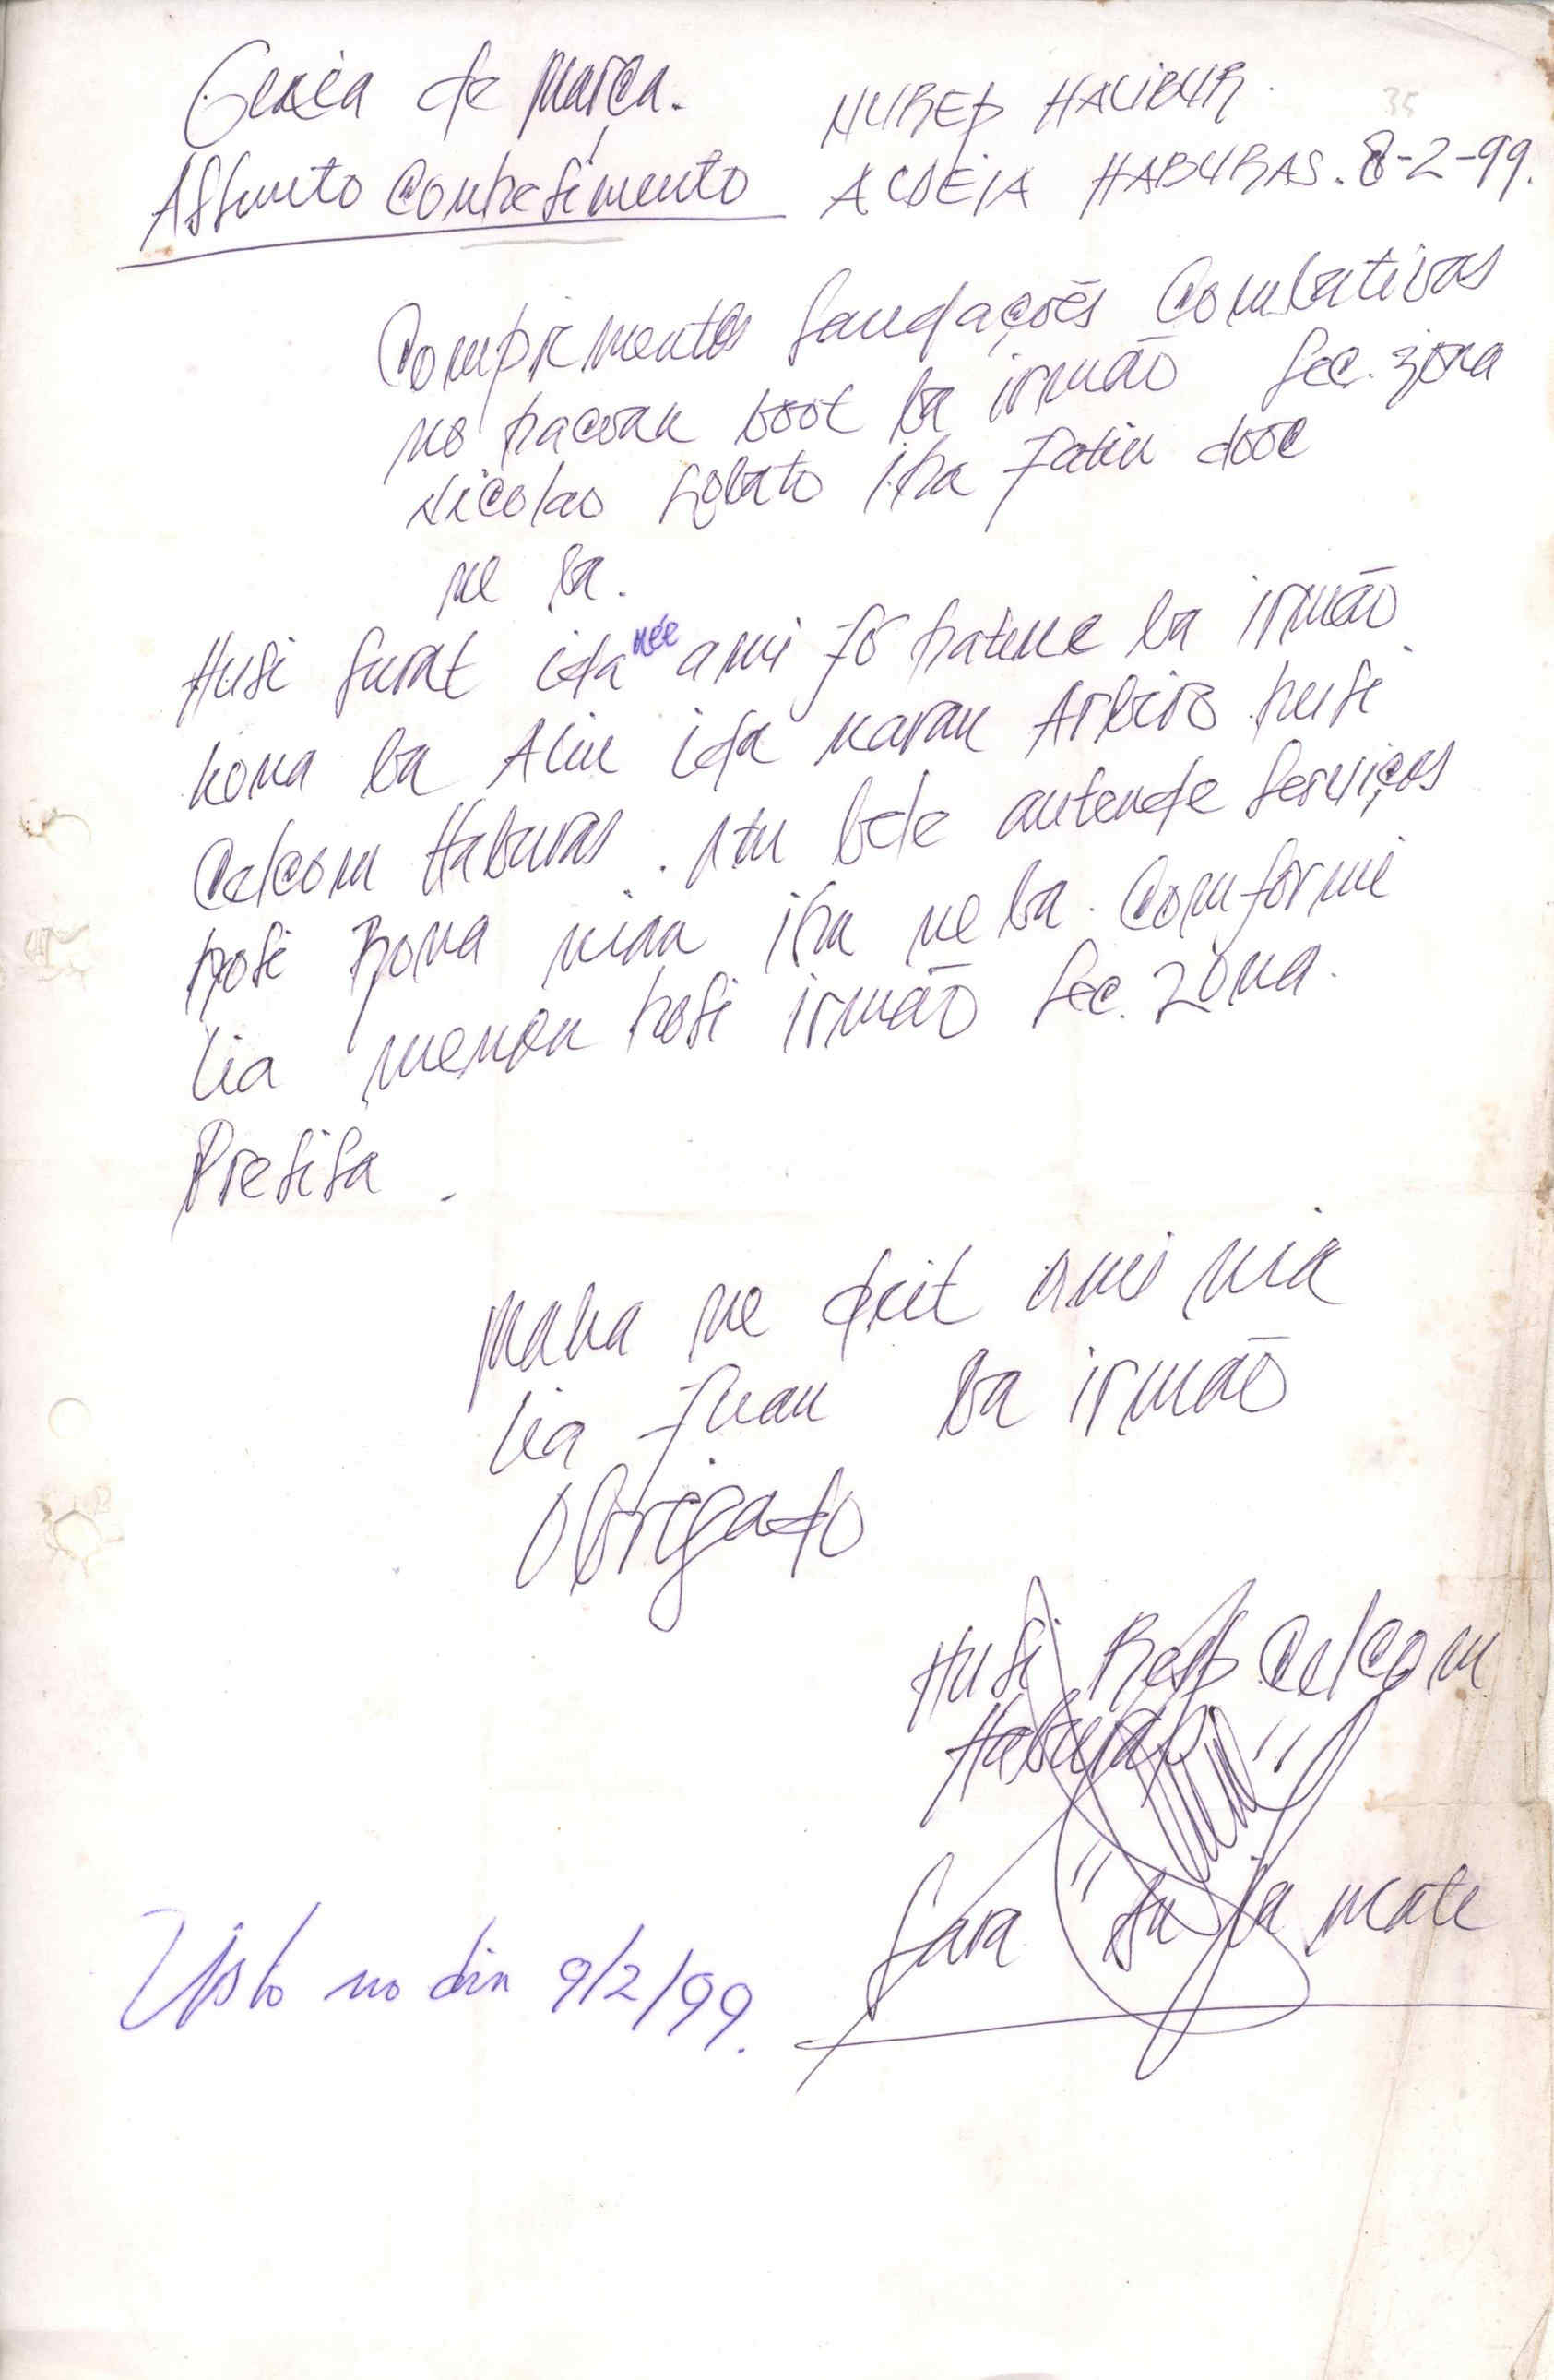 Gexéa de Marca.
NUREP HALIBUR.
35
Assunto Conhesimento
ALDEIA HABURAS. 8-2-99.
Comprimentos Saudações Combativas
no hacoan boot ba irmão Sec. zona
Nicolao Lobato iha Fatin dook
ne ba.
Husi surat ida née ami fó hatene ba irmão
kona ba Alin ida naran Arbiro husi
Celcom Haburas. Atu bele antende Serviços
hosi Zona nian iha ne ba. Comformi
lia menon hosi irmão Sec. Zona.
Presisa.
Maka ne deit ami nia
lia fuan ba irmão
Obrigado
Husi Resp Celcom
Haburas
Sara "An ba mate
Visto no dia 9/2/99.